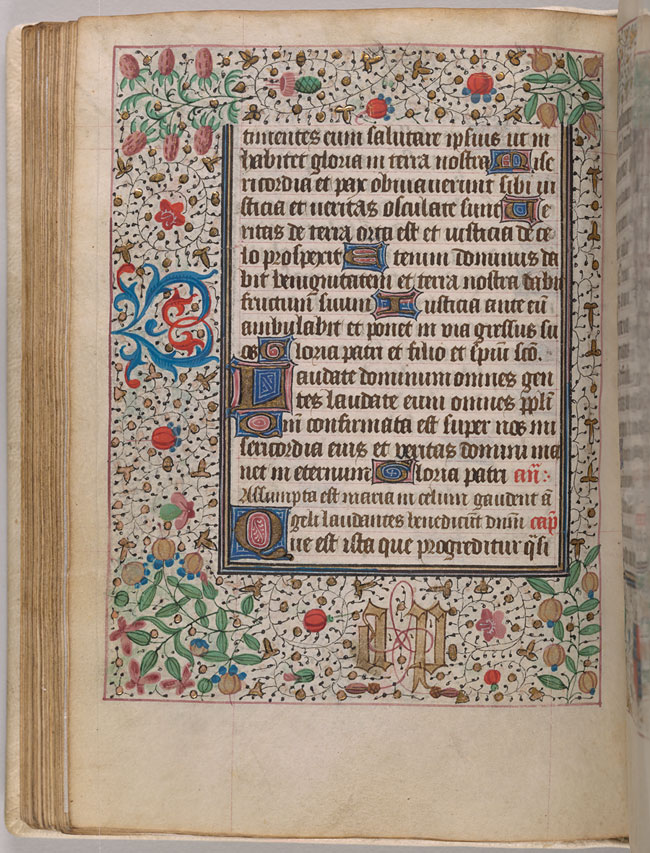 timentes eum salutare ipsius ut in
habitet gloria in terra nostra Mise
ricordia et pax obviaverunt sibi iu
sticia et veritas osculate sunt Ve
ritas de terra orta est et iusticia de ce
lo prospexit Etenim dominus da
bit benignitatem et terra nostra dabit
fructum suum Iusticia ante eu͂
ambulabit et ponet in via gressus su
os Gloria patri et filio et spu͂i sc͂o.
Laudate dominum omnes gen
tes laudate eum omnes pp͂li
Qm͂ confirmata est super nos mi
sericordia eius et veritas domini ma
net in eternum Gloria patri an͂:
Assumpta est maria in celum gaudent a͂
geli laudantes benedicu͂t dn͂m cap͂
Que est ista que progreditur q͂si